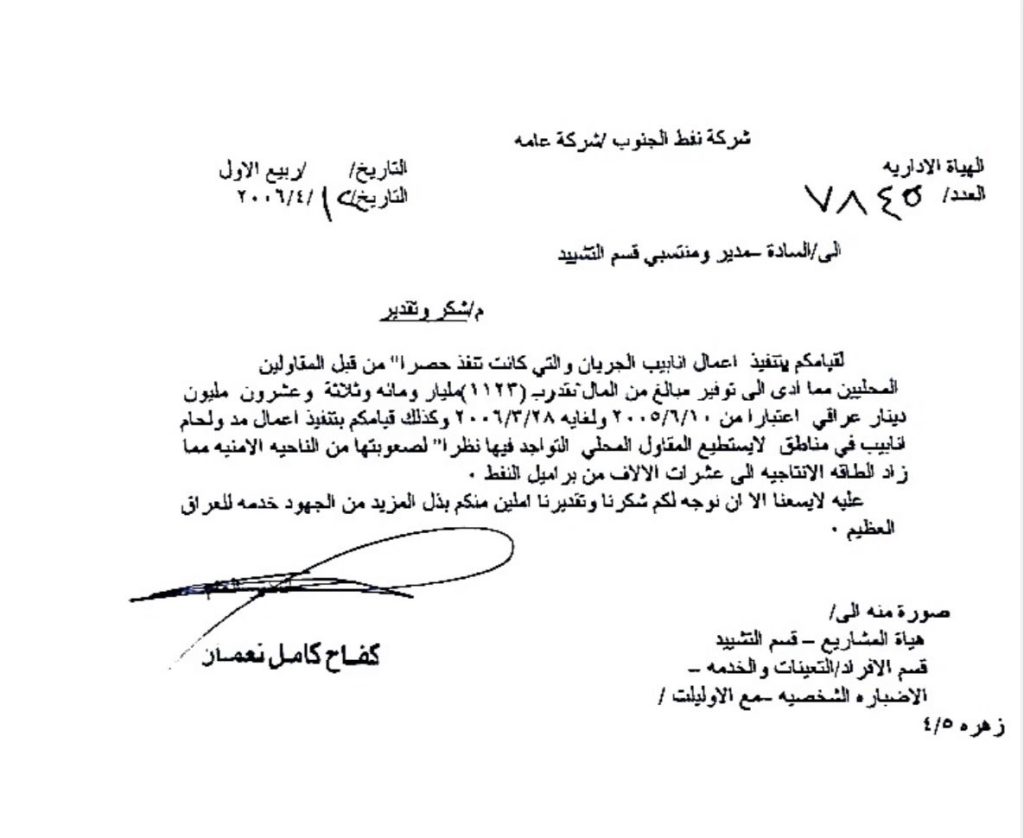 شركة نفط الجنوب /شركة عامه
الهياة الاداريه
العدد/ ٧٨٤٥
التاريخ/ /ربيع الاول
التاريخ/ /٢٠٠٦/٤
الى/السادة –مدير ومنتسبي قسم التشييد
م/شكر وتقدير
لقيامكم بتنفيذ اعمال انابيب الجريان والتي كانت تنفذ حصرا" من قبل المقاولين
المحليين مما ادى الى توفير مبالغ من المال تقدرب (١١٢٣)مليار ومائه وثلاثة وعشرون مليون
دينار عراقي اعتبارا من ٢٠٠٥/٦/١٠ ولغايه ٢٠٠٦/٣/٢٨ وكذلك قيامكم بتنفيذ اعمال مد ولحام
انابيب في مناطق لايستطيع المقاول المحلي التواجد فيها نظرا" لصعوبتها من الناحيه الامنيه مما
زاد الطاقه الانتاجيه الى عشرات الالاف من براميل النفط .
عليه لايسعنا الا ان نوجه لكم شكرنا وتقديرنا املين منكم بذل المزيد من الجهود خدمه للعراق
العظيم .
كفاح كامل نعمان
صورة منه الى/
هياة المشاريع – قسم التشييد
قسم الافراد/التعينات والخدمه –
الاضباره الشخصيه –مع الاوليلت /
زهره ٤/٥